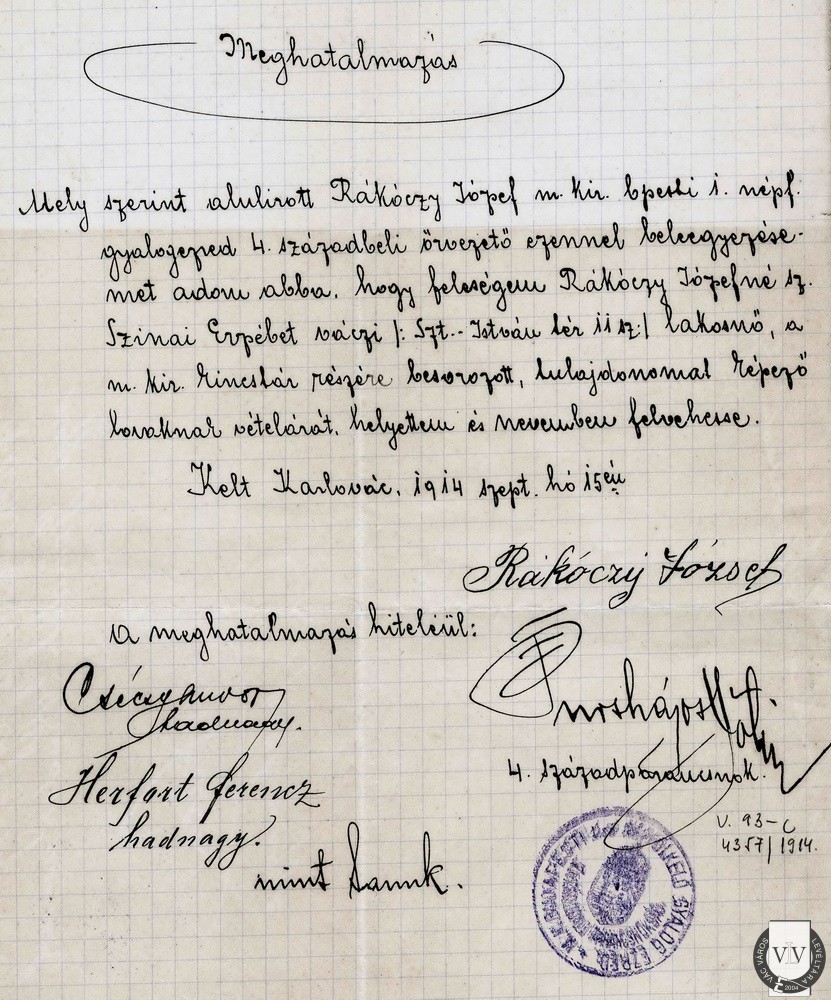 Meghatalmazás
Mely szerint alulirott Rákóczy József m. kir. bpesti 1. népf.
gyalogezred 4. századbeli őrvezető ezennel beleegyezése-
met adom abba, hogy feleségem Rákóczy Józsefné sz.
Szinai Erzsébet váczi /: Szt.-István tér 11 sz:/ lakosnő, a
m. kir. kincstár részére besorozott, tulajdonomat képező
lovaknak vételárát, helyettem és nevemben felvehesse.
Kelt Karlovác, 1914 szept. hó 15én
Rákóczy József
A meghatalmazás hiteléül:
hadnagy.
4. századparancsnok.
Herfort Ferencz
hadnagy.
mint tanuk.
V. 93-c
4357/1914.
GYALOG EZRED
VÁC VÁROS LEVÉLTÁRA
VLV
2004